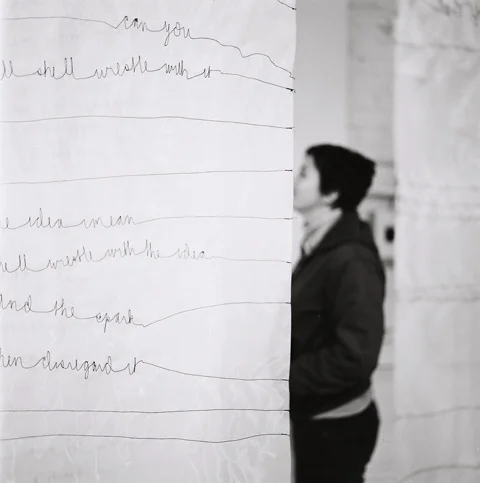 can you
ll shell wrestle with it
e idea i mean
ell wrestle with the idea
and the spark
hen disregard it